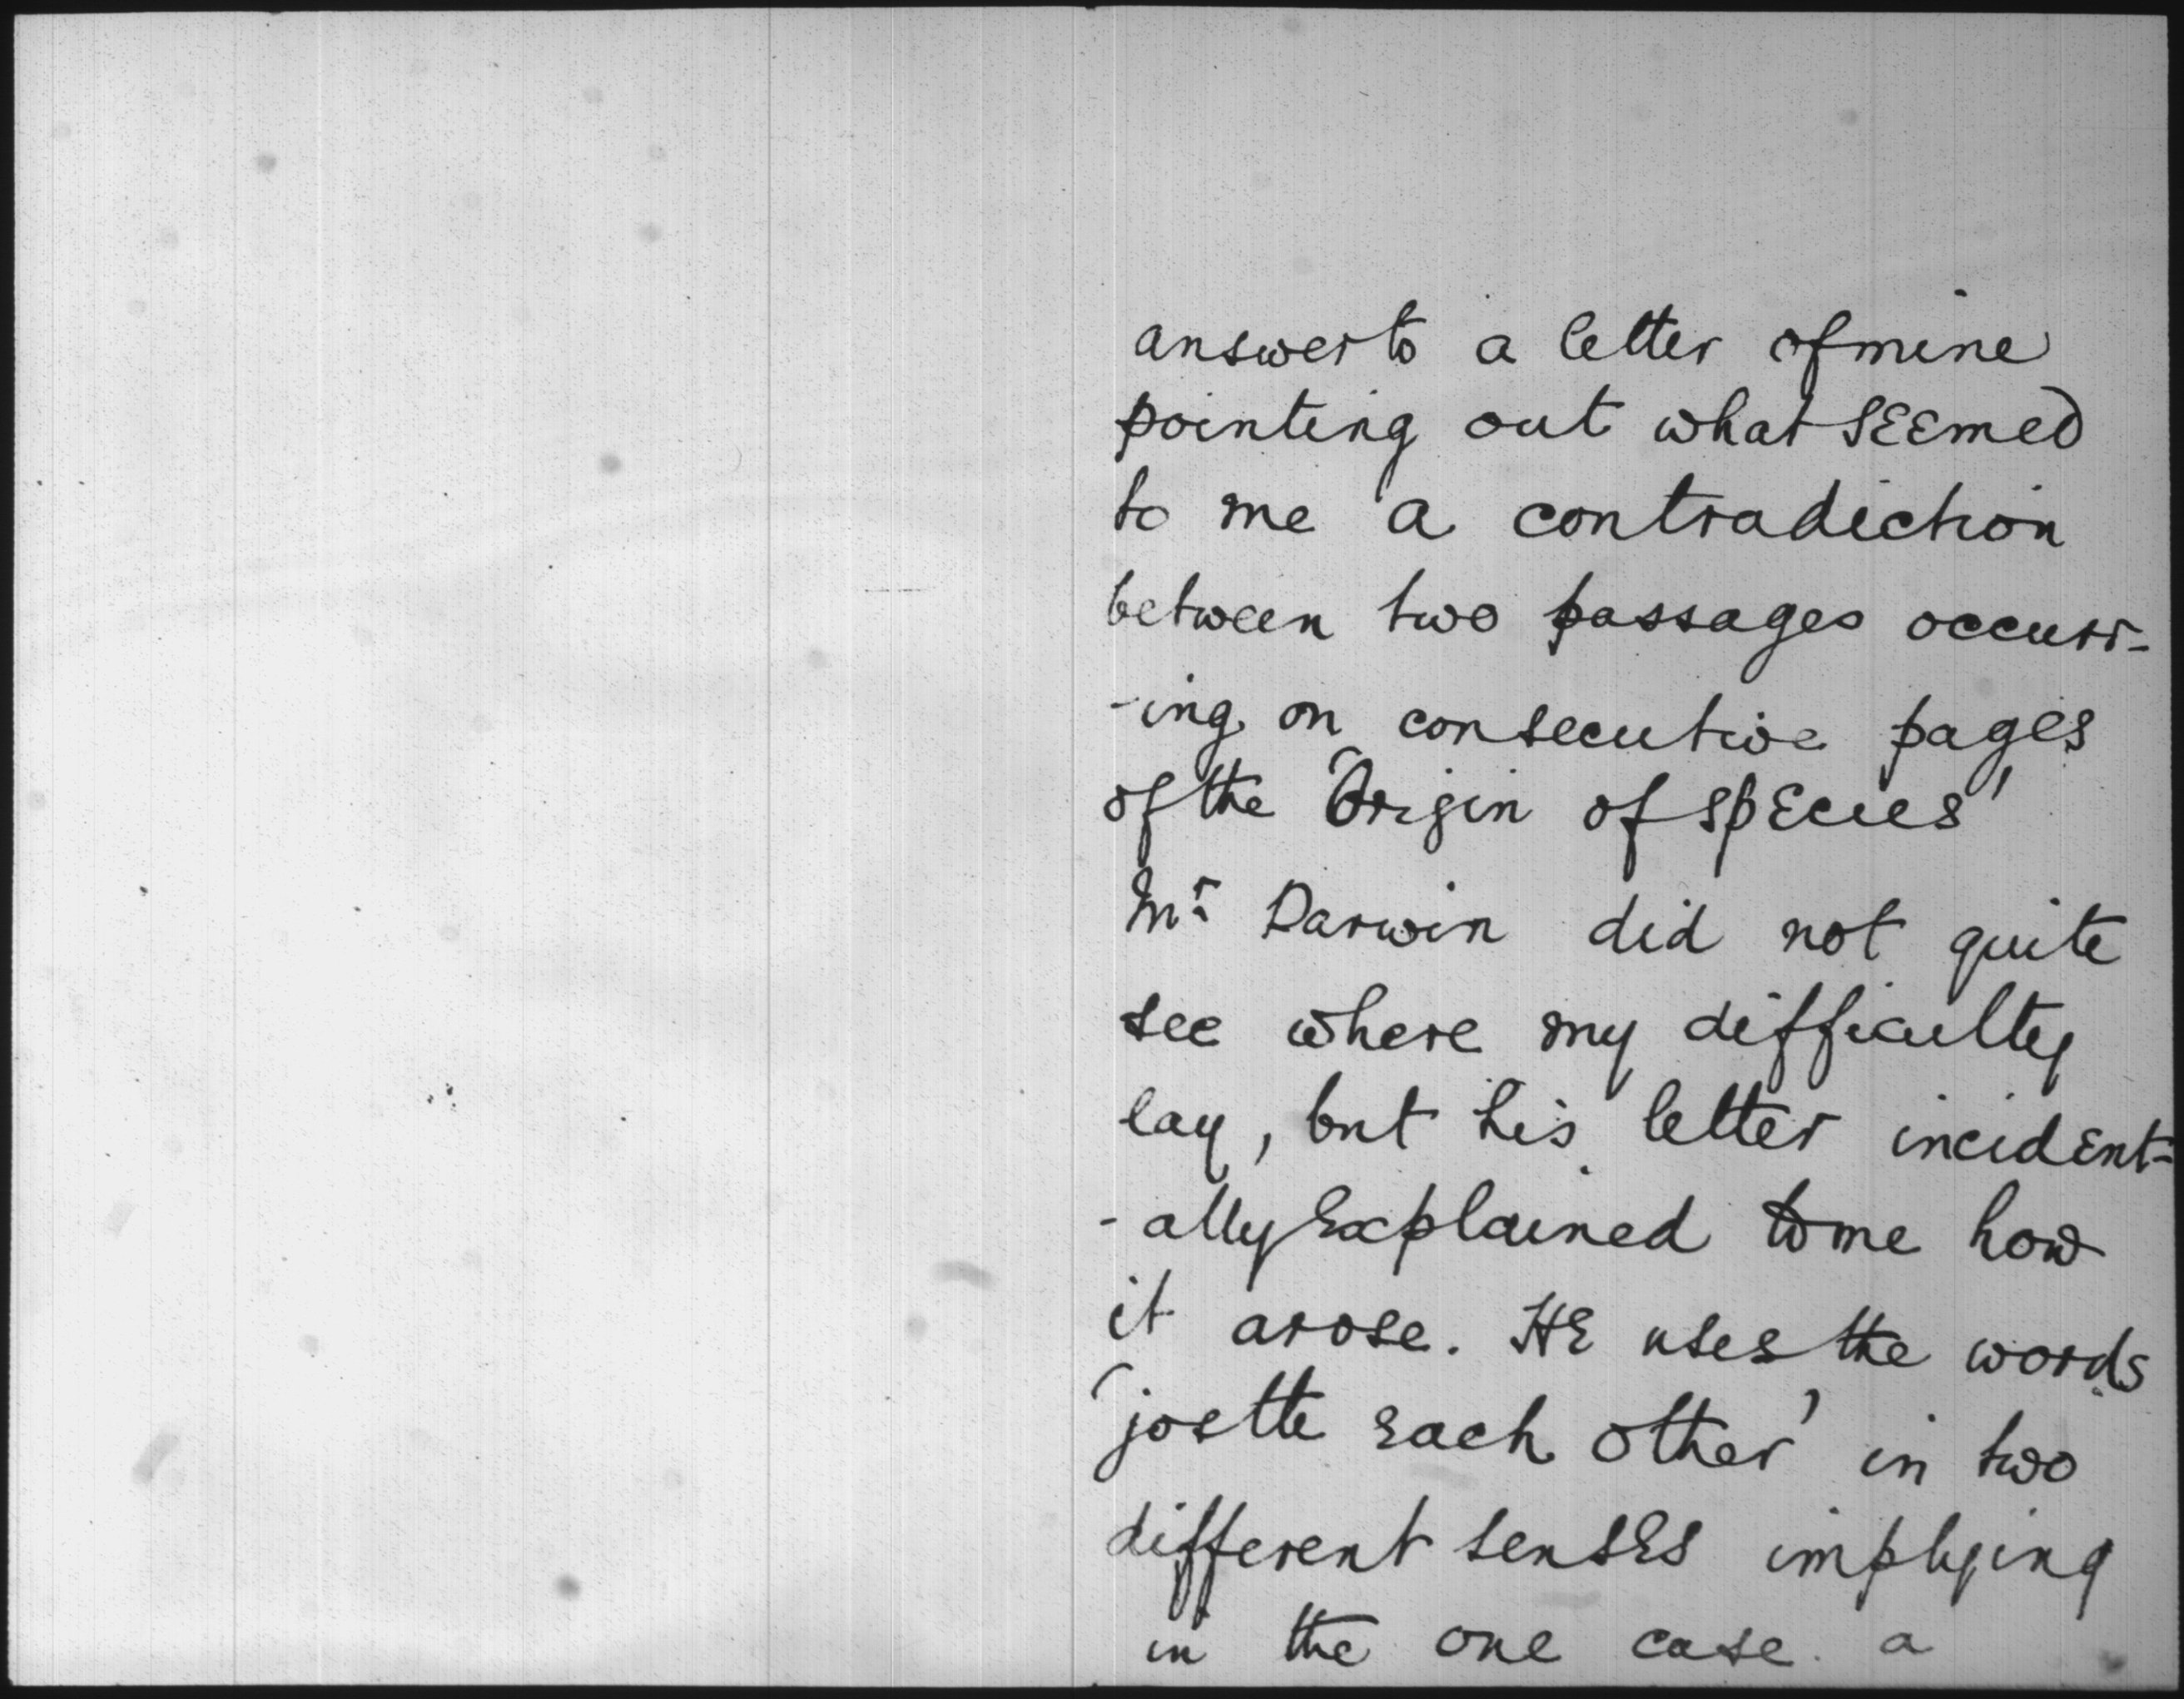 answer to a letter of mine
pointing out what seemed
to me a contradiction
between two passages occurr-
-ing on consecutive pages
of the 'Origin of species'
Mr Darwin did not quite
see where my difficulty
lay, but his letter incident-
-ally explained to me how
it arose. He uses the words
'jostle each other' in two
different senses implying
in the one case a